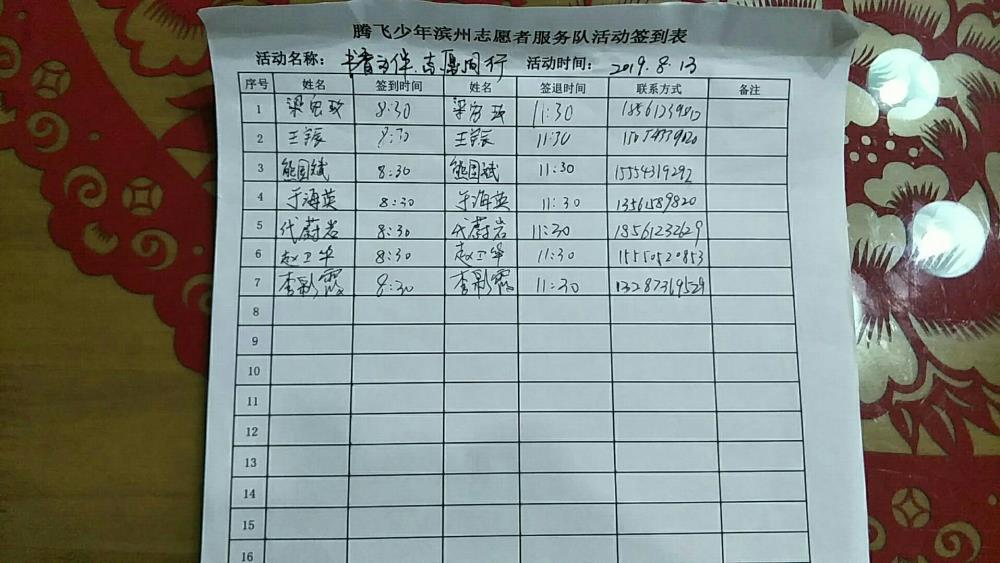 腾飞少年滨州志愿者服务队活动签到表
活动名称： 书香为伴.志愿同行 活动时间： 2019.8.13
序号 姓名 签到时间 姓名 签退时间 联系方式 备注
1 梁 8:30 梁 11:30
2 王 8:30 王 11:30
3 熊国斌 8:30 熊国斌 11:30 15554319292
4 于海英 8:30 于海英 11:30
5 代蔚岩 8:30 代蔚岩 11:30
6 赵卫华 8:30 赵卫华 11:30 15550520853
7 李彩霞 8:30 李彩霞 11:30 13287369529
8
9
10
11
12
13
14
15
16